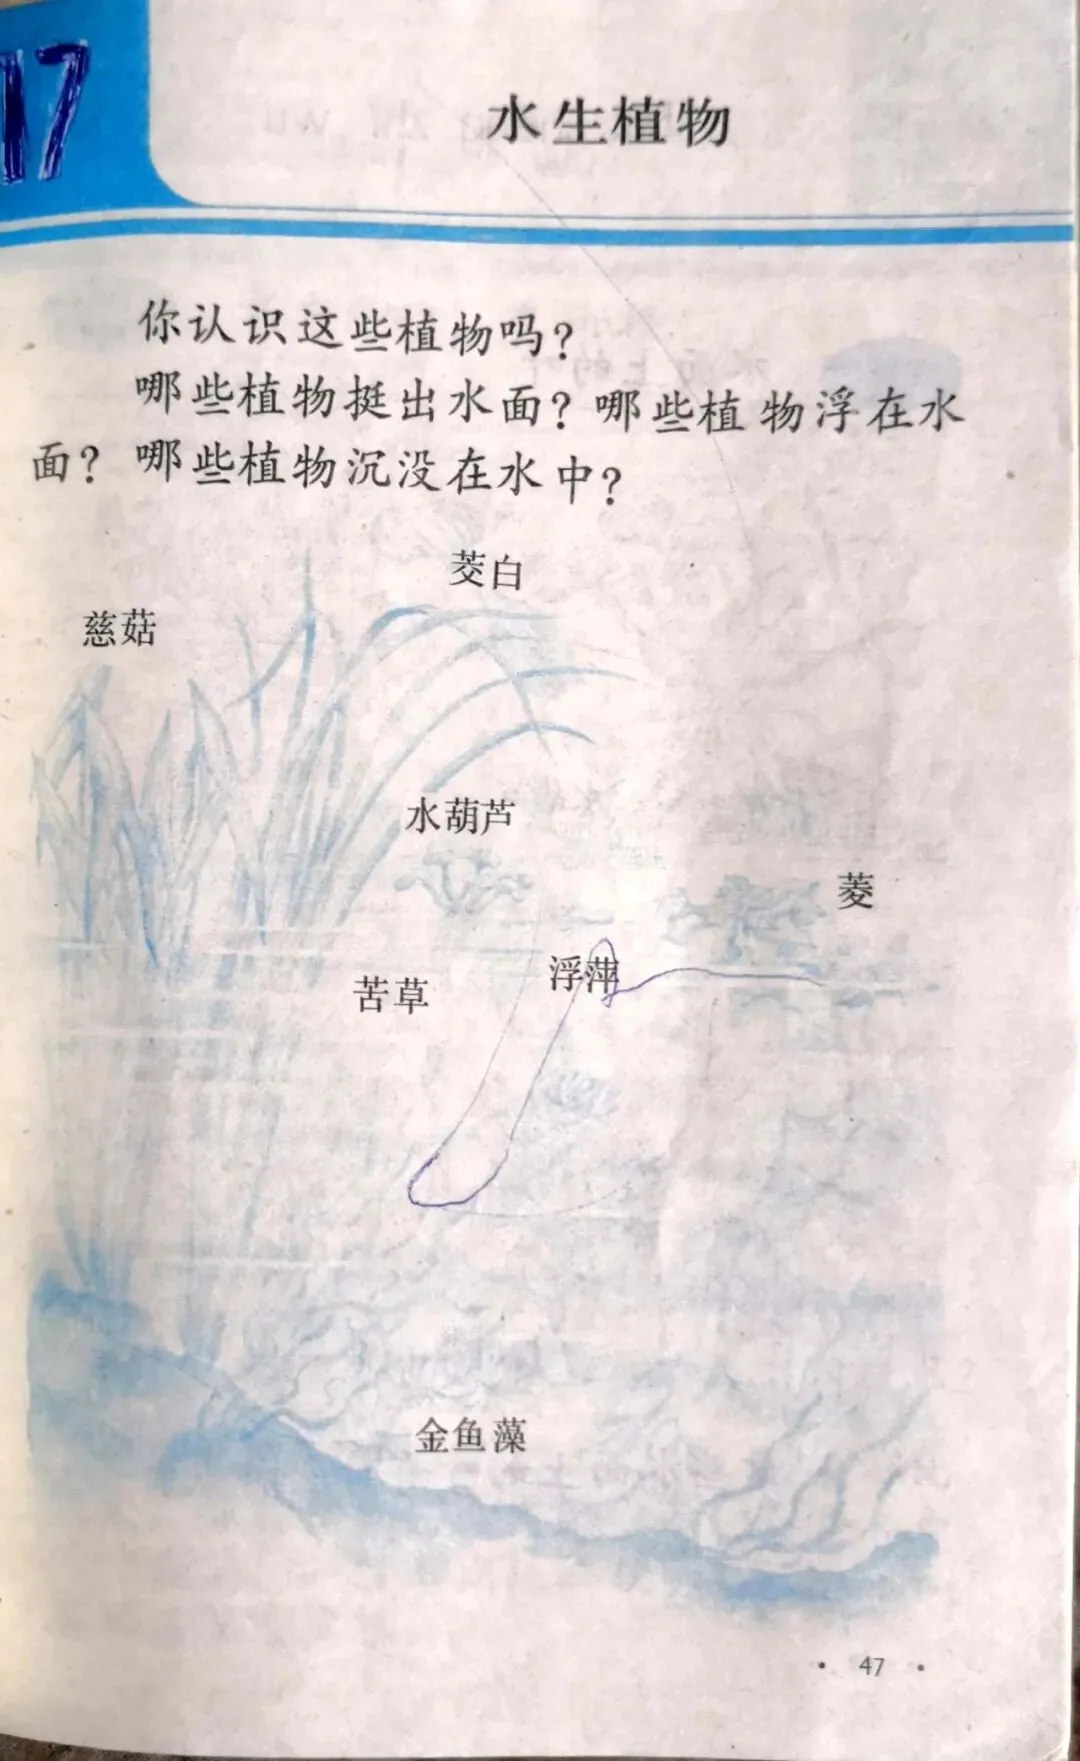 17
水生植物
你认识这些植物吗？
哪些植物挺出水面？哪些植物浮在水
面？哪些植物沉没在水中？
茭白
慈菇
水葫芦
菱
浮萍
苦草
金鱼藻
· 47 ·